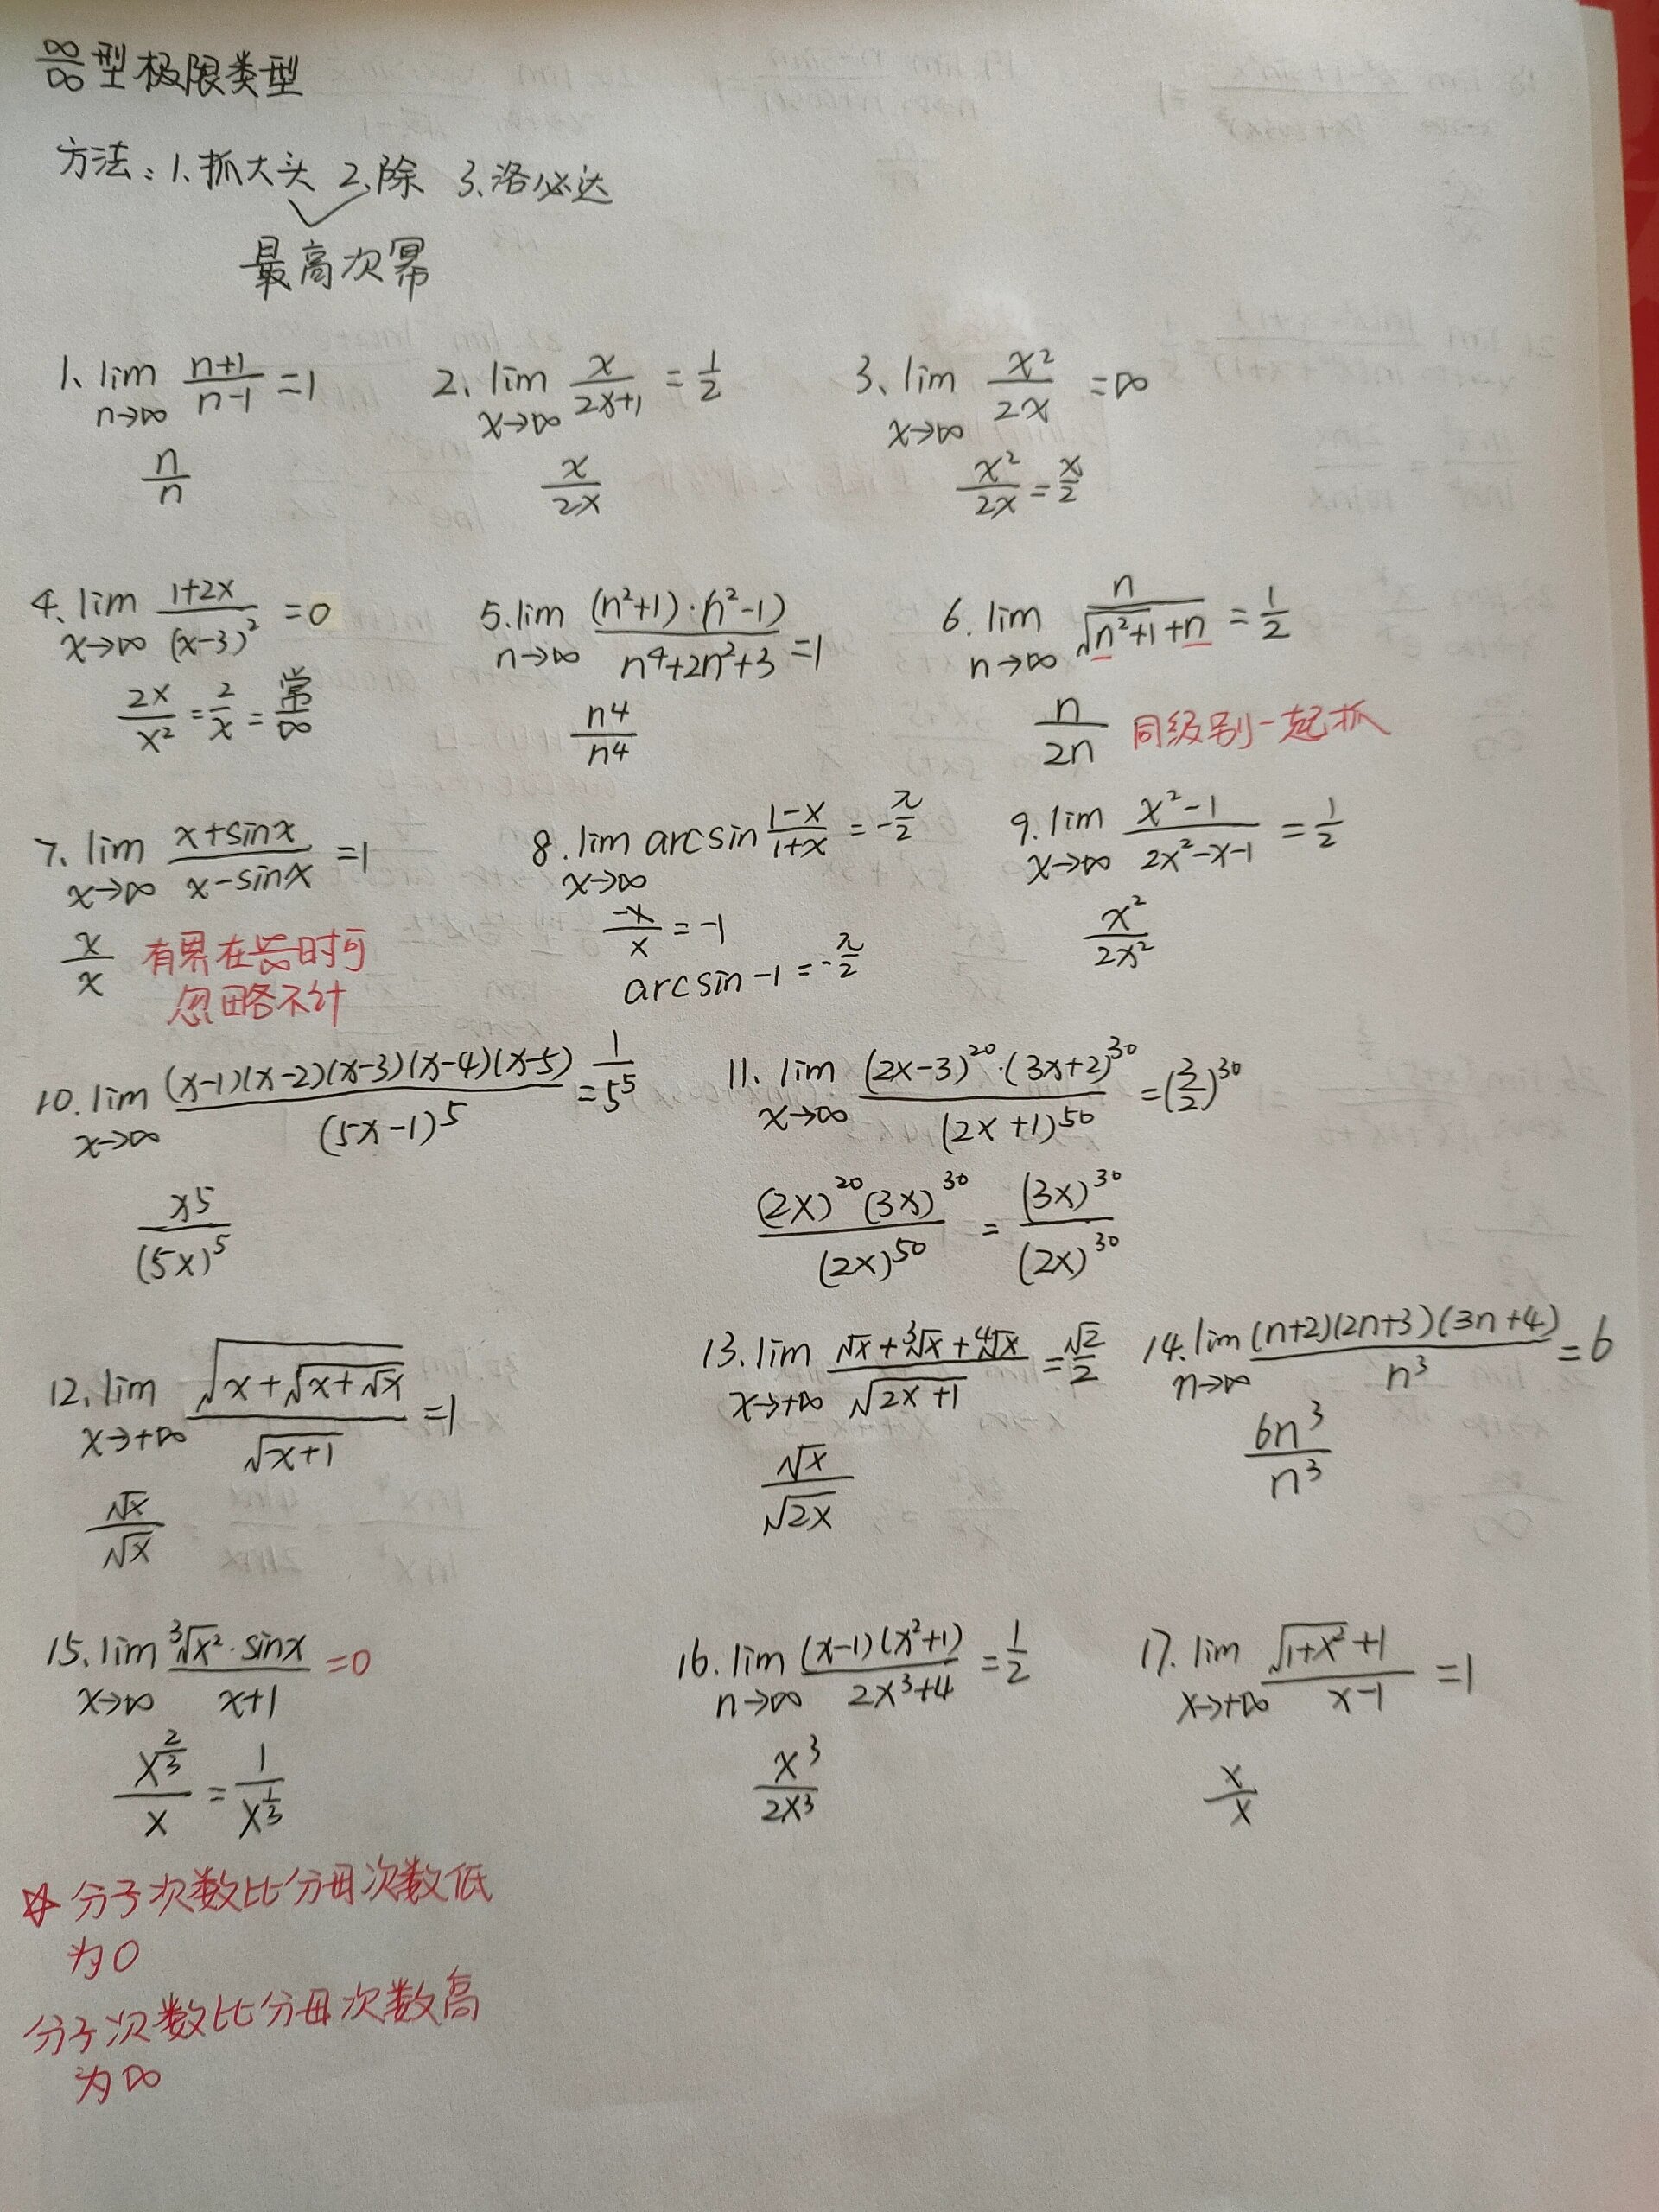 ∞/∞型极限类型
方法:1、抓大头 2、除 3、洛必达
最高次幂
1、lim n→∞ (n+1)/(n-1) =1
n/n
2、lim x→∞ x/(2x+1) = 1/2
x/2x
3、lim x→∞ x²/2x =∞
x²/2x = x/2
4、lim x→∞ (1+2x)/(x-3)² =0
2x/x² = 2/x = 常/∞
5.lim n→∞ (n²+1)·(n²-1)/(n⁴+2n²+3) =1
n4/n4
6. lim n→∞ n/(√(n²+1)+n) = 1/2
n/2n 同级别一起抓
7、lim x→∞ (x+sinx)/(x-sinx) =1
x/x 有界在∞/∞时可
忽略不计
8.lim x→∞ arcsin (1-x)/(1+x) = -π/2
-x/x = -1
arcsin-1 = -π/2
9.lim x→∞ (x²-1)/(2x²-x-1) = 1/2
x²/2x²
10.lim x→∞ (x-1)(x-2)(x-3)(x-4)(x-5)/(5x-1)⁵ = 1/5⁵
x⁵/(5x)⁵
11、lim x→∞ (2x-3)²⁰·(3x+2)³⁰/(2x+1)⁵⁰ =(3/2)³⁰
(2x)²⁰(3x)³⁰/(2x)⁵⁰ = (3x)³⁰/(2x)³⁰
12、lim x→+∞ √(x+√(x+√x))/√(x+1) =1
√x/√x
13.lim x→+∞ (√x+³√x+⁴√x)/√(2x+1) = √2/2
√x/√2x
14.lim n→∞ (n+2)(2n+3)(3n+4)/n³ =6
6n³/n³
15、lim x→∞ ³√x²·sinx/(x+1) =0
x^(2/3)/x = 1/x^(1/3)
16.lim n→∞ (x-1)(x²+1)/(2x³+4) = 1/2
x³/2x³
17. lim x→+∞ (√(1+x²)+1)/(x-1) =1
x/x
☆ 分子次数比分母次数低
为0
分子次数比分母次数高
为∞